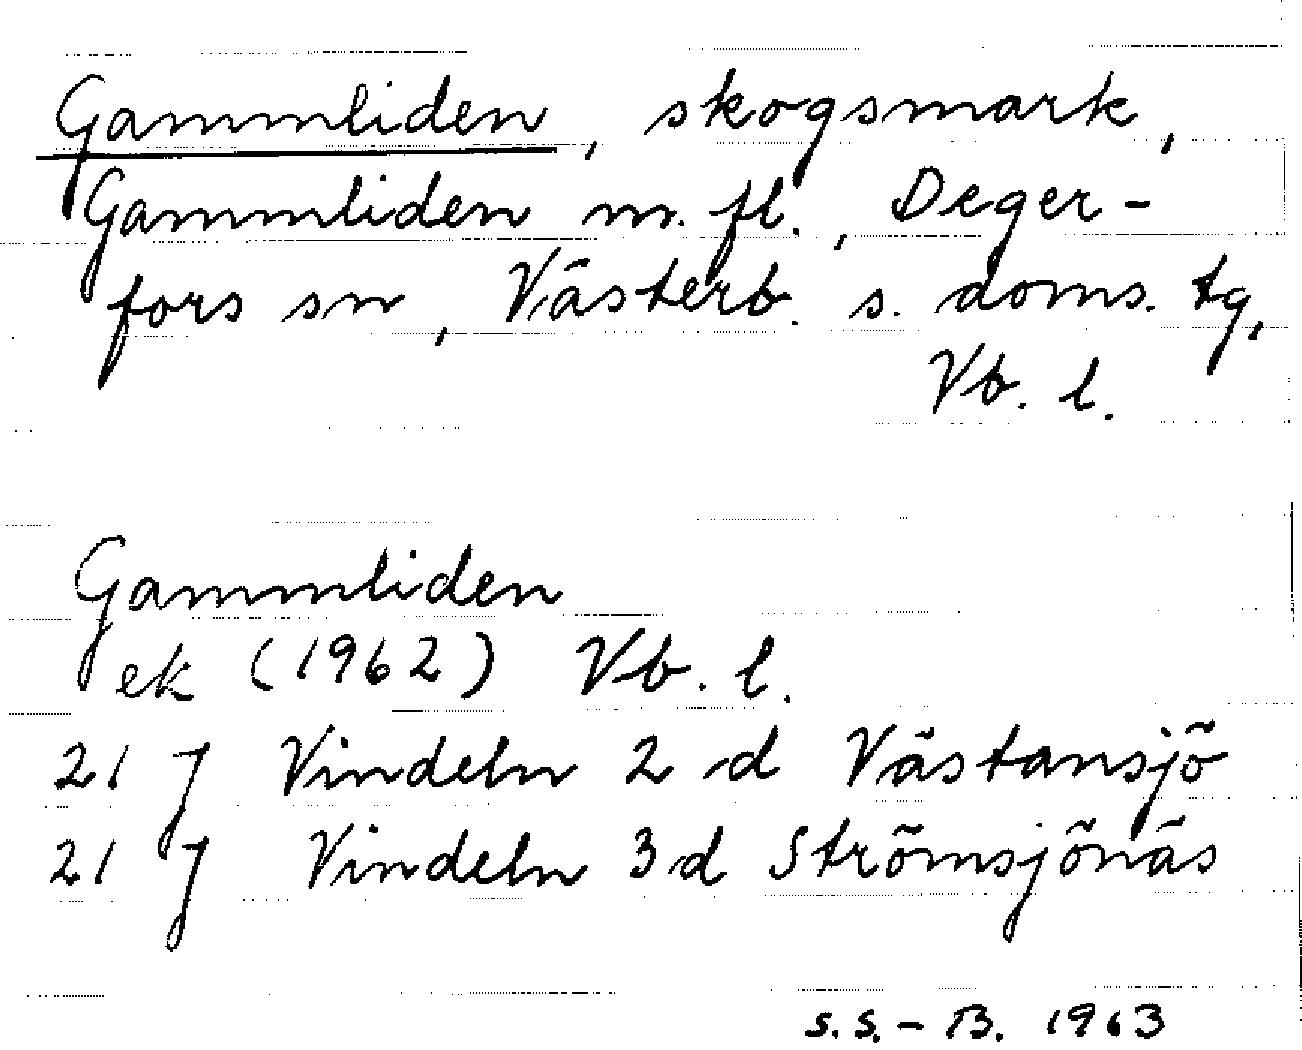 Gammliden, skogsmark,
Gammliden m. fl., Deger-
fors sn, Västerb. s. doms. tg,
Vb. l.
Gammliden
ek (1962) Vb. l.
21 J Vindeln 2 d Västansjö
21 J Vindeln 3d Strömsjönäs
S.S.-B. 1963